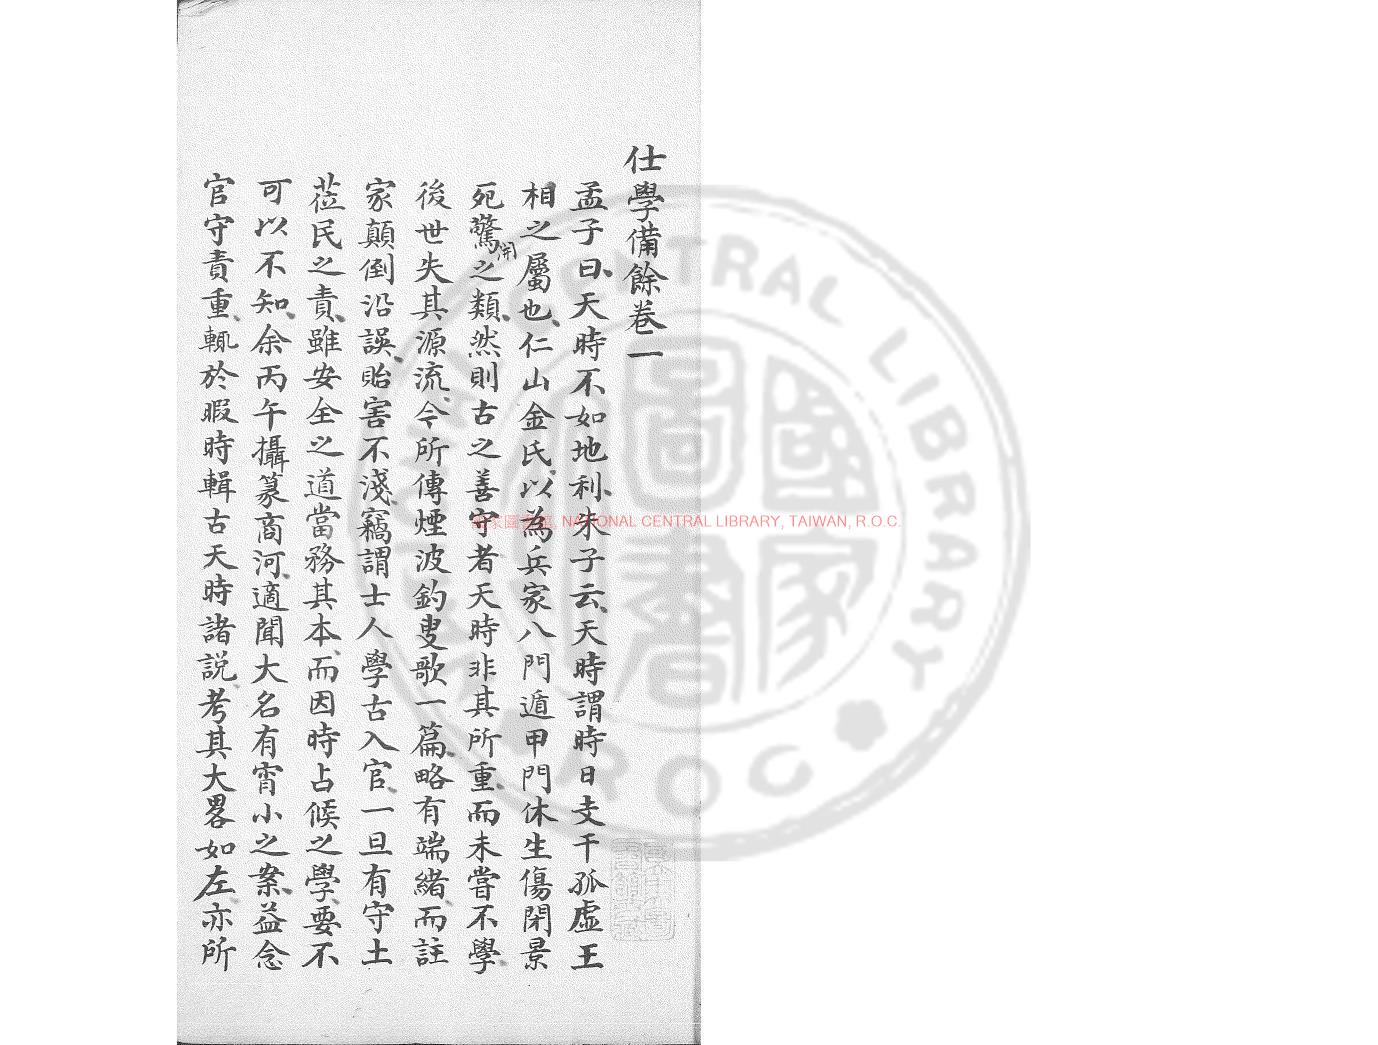 仕學備餘卷一
孟子曰天時不如地利朱子云天時謂時日支干孤虛王
相之屬也仁山金氏以為兵家八門遁甲門休生傷閉景
死驚開之類然則古之善守者天時非其所重而未嘗不學
後世失其源流今所傳煙波釣叟歌一篇略有端緒而註
家顛倒沿誤貽害不淺竊謂士人學古入官一旦有守土
蒞民之責雖安全之道當務其本而因時占候之學要不
可以不知余丙午攝篆商河適聞大名有宵小之案益念
官守責重輒於暇時輯古天時諸說考其大畧如左亦所
國家圖書館, NATIONAL CENTRAL LIBRARY, TAIWAN, R.O.C.
CENTRAL LIBRARY
R.O.C
國家圖書